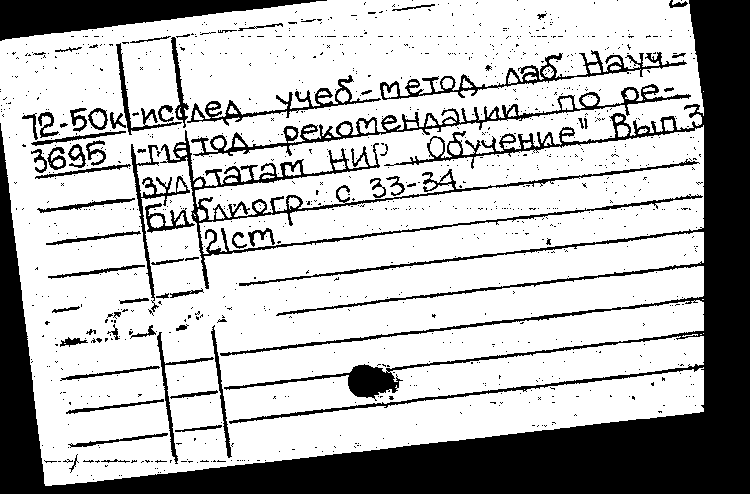 2
72-50к -исслед. учеб.-метод. лаб. Науч.-
3695 -метод. рекомендации по ре-
зультатам НИР „Обучение" Вып.3
Библиогр.: с. 33-34.
21cm.